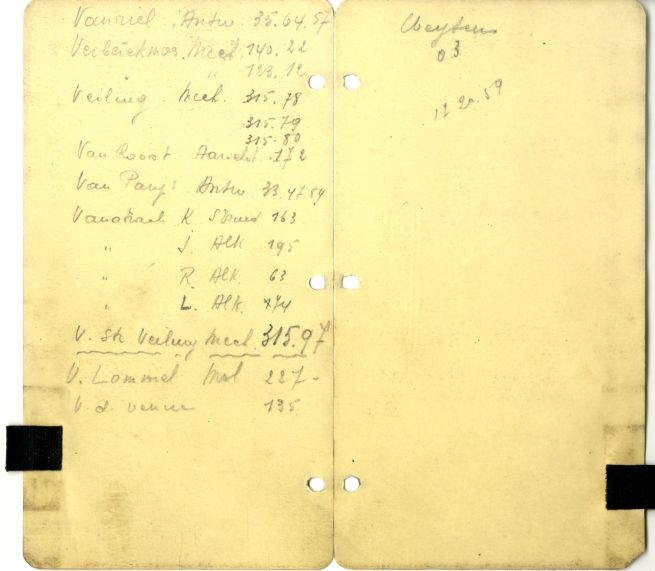 Vanriel Antw. 35.64.57
Verberckmoes Mech 140.22
" " 123.12
Veiling Mech. 315.78
315.79
315.80
Van Roost 172
Van Antw. 33.47.54
K 163
" J. Alk 195
" R. Alk. 63
" L. Alk. 174
V. Sk Veiling Mech. 315.97
V. Lommel Mol 227-
V. d. venne 135
03
12 20.59